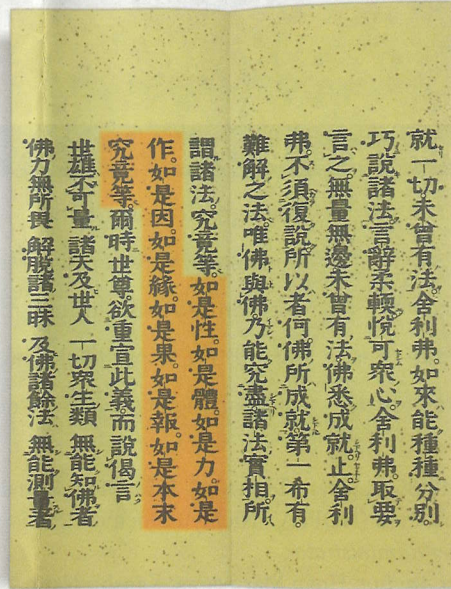 就一切未曾有法。舍利弗。如來能種種分別。
巧說諸法。言辭柔輭。悅可衆心。舍利弗。取要
言之。無量無邊未曾有法。佛悉成就。止舍利
弗。不須復說。所以者何。佛所成就。第一希有。
難解之法。唯佛與佛。乃能究盡諸法實相。所
謂諸法。究竟等。如是性。如是體。如是力。如是
作。如是因。如是緣。如是果。如是報。如是本末
究竟等。爾時世尊。欲重宣此義。而說偈言
世雄不可量 諸天及世人 一切衆生類 無能知佛者
佛力無所畏 解脫諸三昧 及佛諸餘法 無能測量者